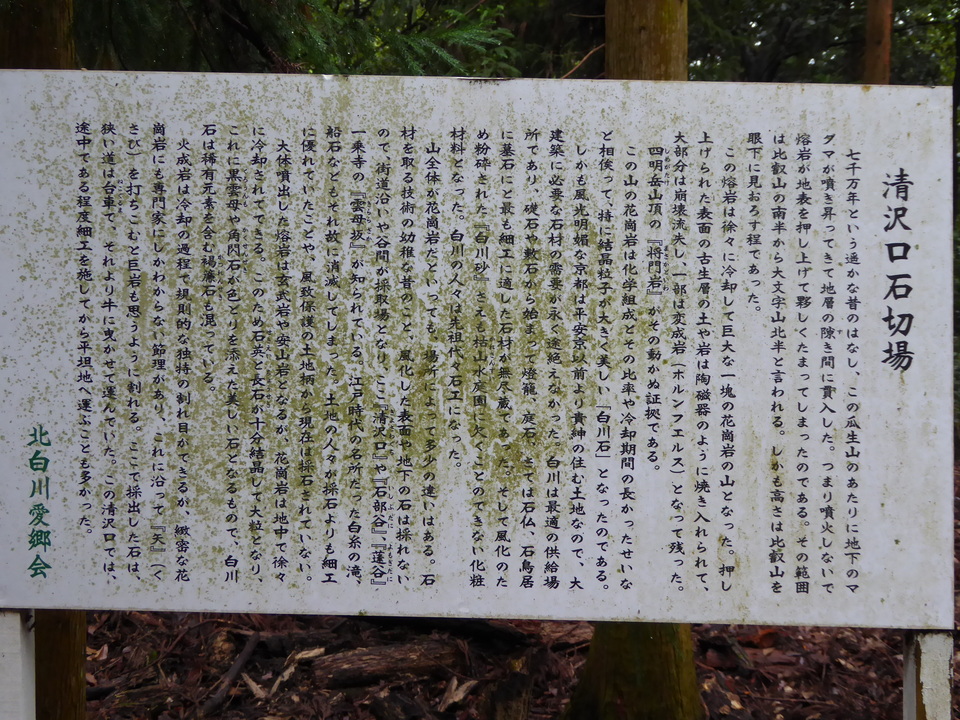 清沢口石切場
七千万年という遥かな昔のはなし、この瓜生山のあたりに地下のマ
グマが噴き昇ってきて地層の隙き間に貫入した。つまり噴火しないで
熔岩が地表を押し上げて夥しくたまってしまったのである。その範囲
は比叡山の南半から大文字山北半と言われる。しかも高さは比叡山を
眼下に見おろす程であった。
この熔岩は徐々に冷却して巨大な一塊の花崗岩の山となった。押し
上げられた表面の古生層の土や岩は陶磁器のように焼き入れられて、
大部分は崩壊流失し、一部は変成岩(ホルンフェルス)となって残った。
四明岳山頂の『将門岩』がその動かぬ証拠である。
この山の花崗岩は化学組成とその比率や冷却期間の長かったせいな
ど相俟って、特に結晶粒子が大きく美しい「白川石」となったのである。
しかも風光明媚な京都は平安京以前より貴紳の住む土地なので、大
建築に必要な石材の需要が永く途絶えなかった。白川は最適の供給場
所であり、礎石や敷石から始まって燈籠、庭石、さては石仏、石鳥居
に墓石にと最も細工に適した石材が無尽蔵であった。そして風化のた
め粉砕された『白川砂』さえも枯山水庭園に欠くことのできない化粧
材料となった。白川の人々は先祖代々石工になった。
山全体が花崗岩だといっても、場所によって多少の違いはある。石
材を取る技術の幼稚な昔のこと、風化した表面や地下の石は採れない
ので、街道沿いや谷間が採取場となり、ここ『清沢口』や『石部谷』、『蓬谷』
一乗寺の『雲母坂』が知られている。江戸時代の名所だった白糸の滝、
船石などもそれ故に消滅してしまった。土地の人々が採石よりも細工
に優れていたことや、風致保護の土地柄から現在は採石されていない。
大体噴出した熔岩は玄武岩や安山岩となるが、花崗岩は地中で徐々
に冷却されてできる。このため石英と長石が十分結晶して大粒となり、
これに黒雲母や角閃石が色どりを添えた美しい石となるもので、白川
石は稀有元素を含む褐簾石も混っている。
火成岩は冷却の過程で規則的な独特の割れ目ができるが、緻密な花
崗岩にも専門家にしかわからない節理があり、これに沿って『矢』(く
さび)を打ちこむと巨岩も思うように割れる。ここで採出した石は、
狭い道は台車で、それより牛に曳かせて運んでいた。この清沢口では
途中である程度細工を施してから平坦地へ運ぶことも多かった。
北白川愛郷会